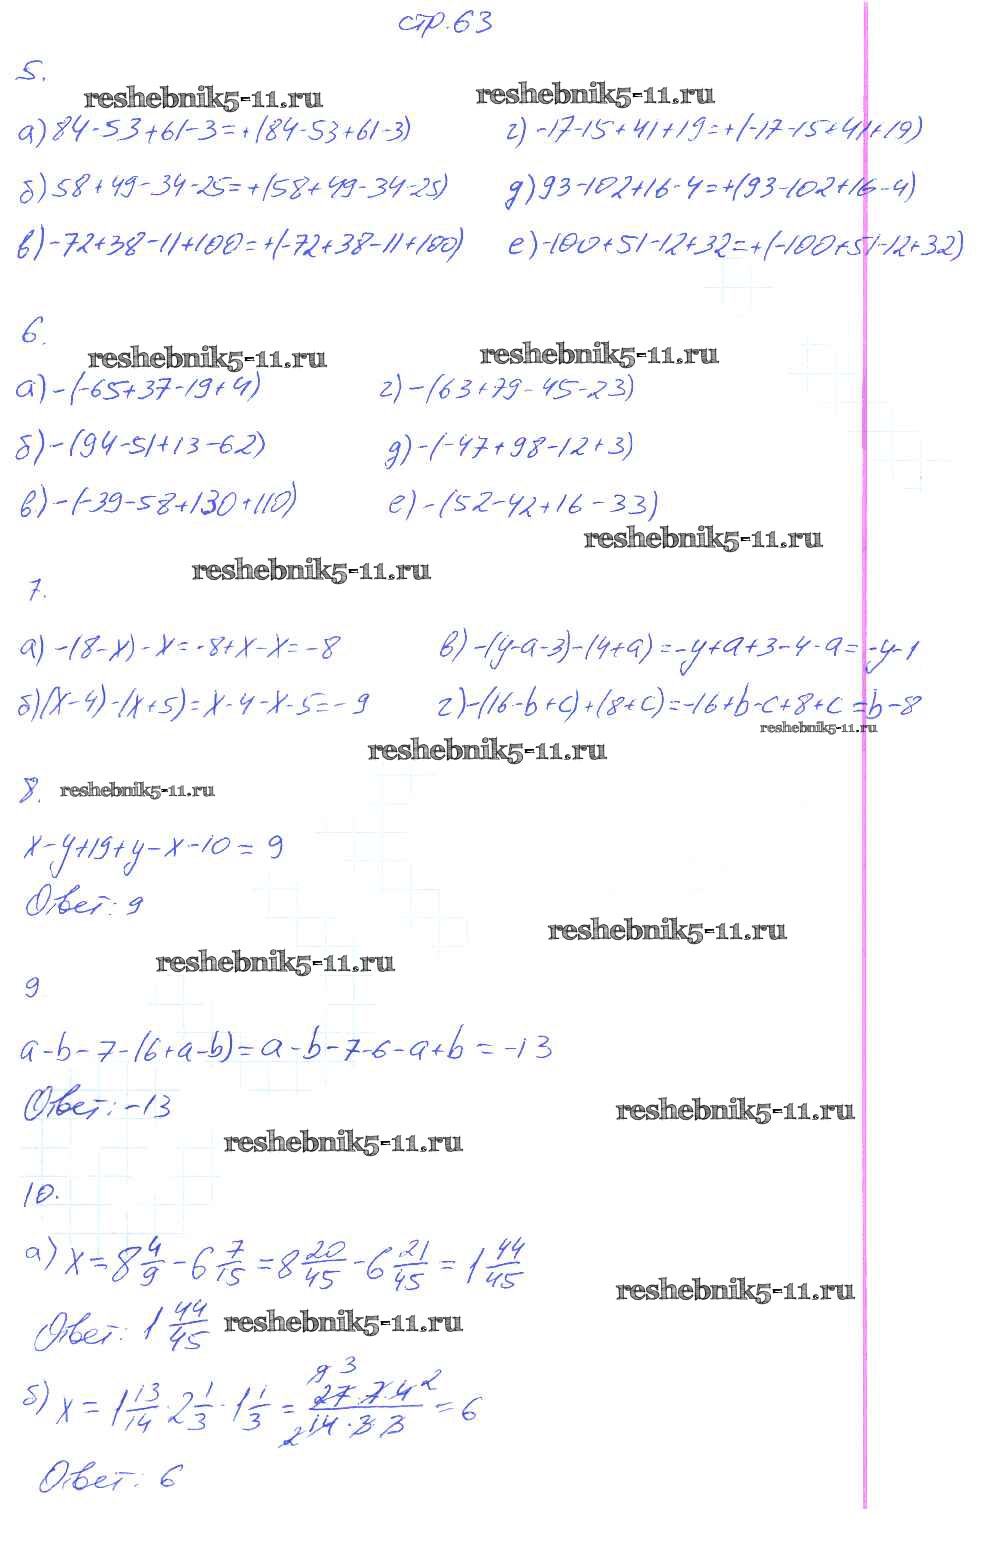 стр. 63
5.
reshebnik5-11.ru reshebnik5-11.ru
а) 84-53+61-3=+(84-53+61-3) г) -17-15+41+19=+(-17-15+41+19)
б) 58+49-34-25=+(58+49-34-25) д) 93-102+16-4=+(93-102+16-4)
в) -72+38-11+100=+(-72+38-11+100) е) -100+51-12+32=+(-100+51-12+32)
6.
reshebnik5-11.ru reshebnik5-11.ru
а) -(-65+37-19+4) г) -(63+79-45-23)
б) -(94-51+13-62) д) -(-47+98-12+3)
в) -(-39-58+130+110) е) -(52-42+16-33)
reshebnik5-11.ru
reshebnik5-11.ru
7.
а) -(8-x)-x=-8+x-x=-8 в) -(y-a-3)-(4+a)=-y+a+3-4-a=-y-1
б) (x-4)-(x+5)=x-4-x-5=-9 г) -(16-b+c)+(8+c)=-16+b-c+8+c=b-8
reshebnik5-11.ru
reshebnik5-11.ru
8. reshebnik5-11.ru
x-y+19+y-x-10=9
Ответ: 9
reshebnik5-11.ru
reshebnik5-11.ru
9
a-b-7-(6+a-b)=a-b-7-6-a+b=-13
Ответ: -13
reshebnik5-11.ru
reshebnik5-11.ru
10.
а) x=8 4/9 - 6 7/15 = 8 20/45 - 6 21/45 = 1 44/45
reshebnik5-11.ru
Ответ: 1 44/45 reshebnik5-11.ru
9 3
б) x = 1 13/14 · 2 1/3 · 1 1/3 = 27·7·4 2 / 2 14·3·3 = 6
Ответ: 6